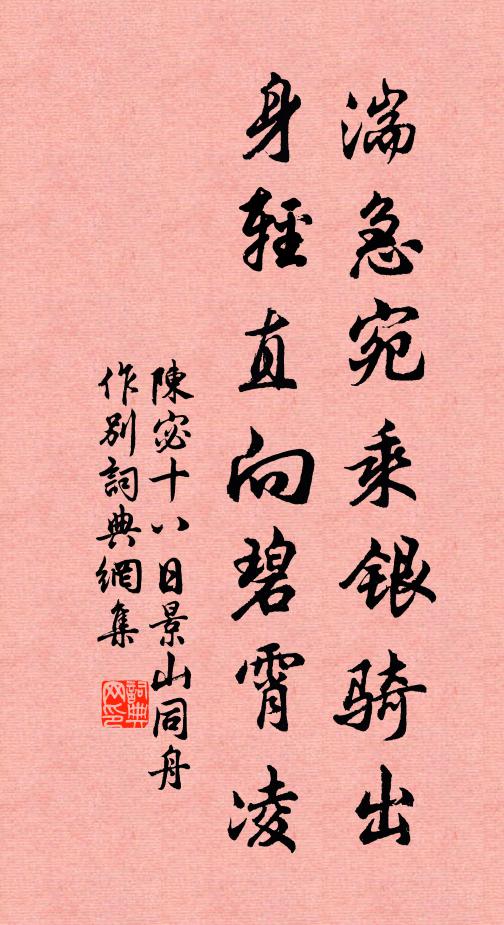 湍急宛乘銀騎出
身輕直向碧霄凌
陳宓十八日景山同舟
作別詞典網集
詞典网印